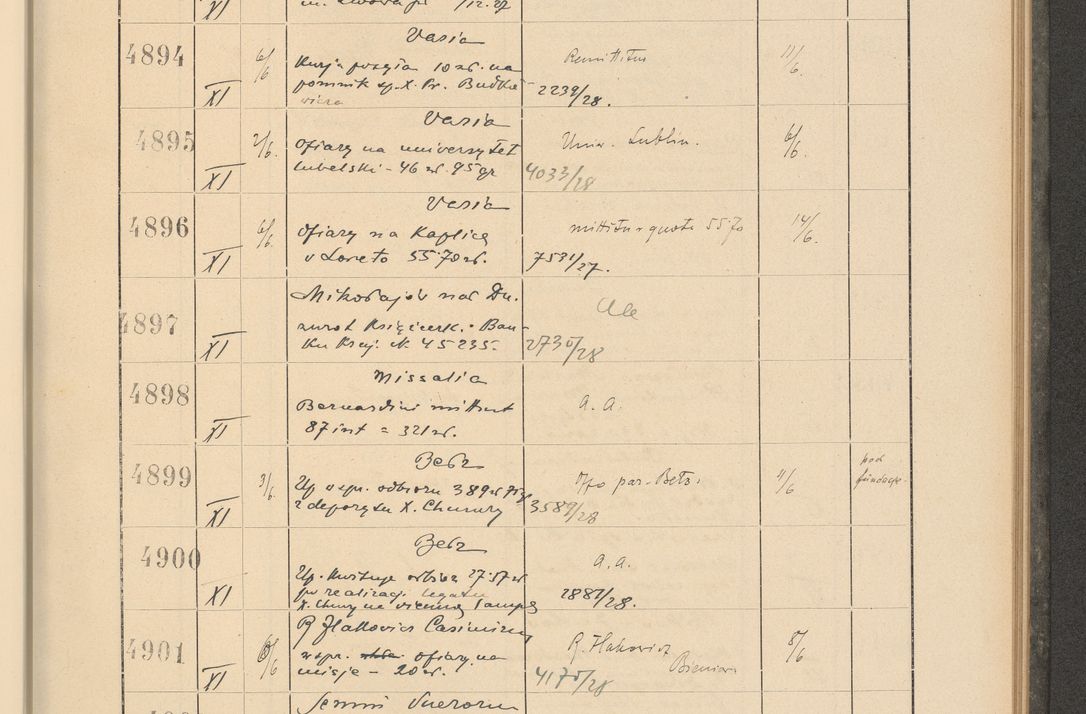 XI
4894
6/6
XI
Varia
Kurja 10 zł. na
pomnik sp. X. Pr. Budkie-
wicza
Remittitur
2239/28.
11/6.
4895
2/6.
XI
Varia
Ofiary na uniwersytet
lubelski - 46 zł. 95 gr
Uniw. Lublin.
4033/28
6/6.
4896
6/6.
XI
Varia
Ofiary na Kaplicę
w Loreto 55.70 zł.
mittitur quota 55.70
7531/27.
14/6.
4897
XI
Mikołajów nad Dn.
zwrot Książeczk. Ban-
ku Kraj. № 45235.
2730/28
4898
XI
Missalia
Bernardini mittunt
87 int = 321 zł.
a. a.
4899
3/6.
XI
Bełz
Up w spr. odbioru 389 zł
z depozytu X. Chmury
par. Bełz.
3587/28
11/6
pod
fundacje.
4900
XI
Bełz
Up. kwituje odbiór 27.17 zł
po realizacji legatu
X. Chmury na wieczną lampę
a. a.
2887/28.
4901
6/6
XI
R. Hłakowicz Casimirus
w spr. ofiary na
misje - 20 zł.
R. Hłakowicz
4175/28
8/6